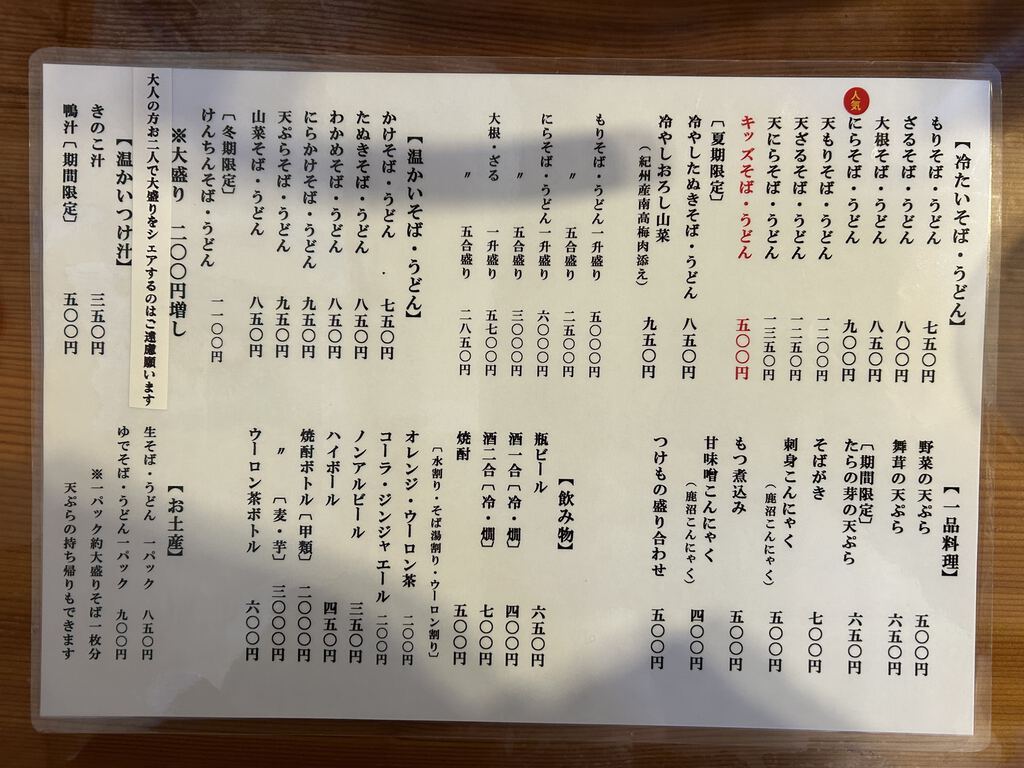 【冷たいそば・うどん】
もりそば・うどん 七五〇円
ざるそば・うどん 八〇〇円
大根そば・うどん 八五〇円
人気
にらそば・うどん 九〇〇円
天もりそば・うどん 一二〇〇円
天ざるそば・うどん 一二五〇円
天にらそば・うどん 一三五〇円
キッズそば・うどん 五〇〇円
〔夏期限定〕
冷やしたぬきそば・うどん 八五〇円
冷やしおろし山菜 九五〇円
(紀州産南高梅肉添え)
もりそば・うどん一升盛り 五〇〇〇円
〃 五合盛り 二五〇〇円
にらそば・うどん一升盛り 六〇〇〇円
〃 五合盛り 三〇〇〇円
大根・ざる 一升盛り 五七〇〇円
〃 五合盛り 二八五〇円
【温かいそば・うどん】
かけそば・うどん 七五〇円
たぬきそば・うどん 八五〇円
わかめそば・うどん 八五〇円
にらかけそば・うどん 九五〇円
天ぷらそば・うどん 九五〇円
山菜そば・うどん 八五〇円
〔冬期限定〕
けんちんそば・うどん 一一〇〇円
※大盛り 二〇〇円増し
大人の方お二人で大盛りをシェアするのはご遠慮願います
【温かいつけ汁】
きのこ汁 三五〇円
鴨汁〔期間限定〕 五〇〇円
【一品料理】
野菜の天ぷら 五〇〇円
舞茸の天ぷら 六五〇円
〔期間限定〕
たらの芽の天ぷら 六五〇円
そばがき 七〇〇円
刺身こんにゃく 五〇〇円
(鹿沼こんにゃく)
もつ煮込み 五〇〇円
甘味噌こんにゃく 四〇〇円
(鹿沼こんにゃく)
つけもの盛り合わせ 五〇〇円
【飲み物】
瓶ビール 六五〇円
酒一合〔冷・燗〕 四〇〇円
酒二合〔冷・燗〕 七〇〇円
焼酎 五〇〇円
〔水割り・そば湯割り・ウーロン割り〕
オレンジ・ウーロン茶 二〇〇円
コーラ・ジンジャエール 二〇〇円
ノンアルビール 三五〇円
ハイボール 四五〇円
焼酎ボトル〔甲類〕 二〇〇〇円
〃 〔麦・芋〕 三〇〇〇円
ウーロン茶ボトル 六〇〇円
【お土産】
生そば・うどん 一パック 八五〇円
ゆでそば・うどん一パック 九〇〇円
※一パック約大盛りそば一枚分
天ぷらの持ち帰りもできます